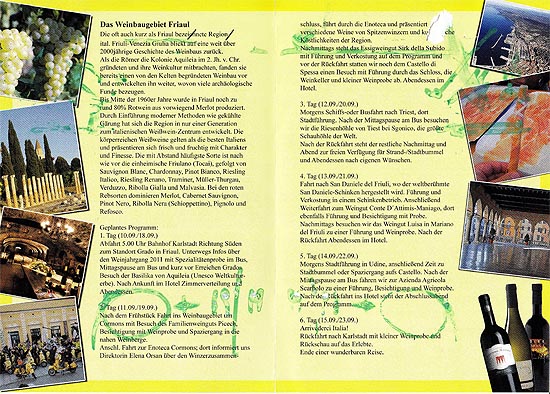 Das Weinbaugebiet Friaul
Die oft auch kurz als Friaul bezeichnete Region
ital. Friuli-Venezia Giulia blickt auf eine weit über
2000jährige Geschichte des Weinbaus zurück.
Als die Römer die Kolonie Aquileia im 2. Jh. v. Chr.
gründeten und ihre Weinkultur mitbrachten, fanden sie
bereits einen von den Kelten begründeten Weinbau vor
und entwickelten ihn weiter, wovon viele archäologische
Funde bezeugen.
Bis Mitte der 1960er Jahre wurde in Friaul noch zu
rund 80% Rotwein aus vorwiegend Merlot produziert.
Durch Einführung moderner Methoden wie gekühlte
Gärung hat sich die Region in nur einer Generation
zum italienischen Weißwein-Zentrum entwickelt. Die
körperreichen Weißweine gelten als die besten Italiens
und präsentieren sich frisch und fruchtig mit Charakter
und Finesse. Die mit Abstand häufigste Sorte ist nach
wie vor die einheimische Friulano (Tocai), gefolgt von
Sauvignon Blanc, Chardonnay, Pinot Bianco, Riesling
Italico, Riesling Renano, Traminer, Müller-Thurgau,
Verduzzo, Ribolla Gialla und Malvasia. Bei den roten
Rebsorten dominieren Merlot, Cabernet Sauvignon,
Pinot Nero, Ribolla Nera (Schioppettino), Pignolo und
Refosco.
Geplantes Programm:
1. Tag (10.09./18.09.)
Abfahrt 5.00 Uhr Bahnhof Karlstadt Richtung Süden
zum Standort Grado in Friaul. Unterwegs Infos über
den Weinjahrgang 2011 mit Spezialitätenprobe im Bus,
Mittagspause am Bus und kurz vor Erreichen Grados
Besuch der Basilika von Aquileia (Unesco Weltkultur-
erbe). Nach Ankunft im Hotel Zimmerverteilung und
Abendessen.
2. Tag (11.09./19.09.)
Nach dem Frühstück Fahrt ins Weinbaugebiet um
Cormons mit Besuch des Familienweinguts Picech,
Besichtigung mit Weinprobe und Spaziergang in die
nahen Weinberge.
Anschl. Fahrt zur Enoteca Cormons; dort informiert uns
Direktorin Elena Orsan über den Winzerzusammen-
schluss, führt durch die Enoteca und präsentiert
verschiedene Weine von Spitzenwinzern und
Köstlichkeiten der Region.
Nachmittags steht das Essigweingut Sirk della Subido
mit Führung und Verkostung auf dem Programm und
vor der Rückfahrt statten wir noch dem Castello di
Spessa einen Besuch mit Führung durch das Schloss, die
Weinkeller und kleiner Weinprobe ab. Abendessen im
Hotel.
3. Tag (12.09./20.09.)
Morgens Schiffs-oder Busfahrt nach Triest, dort
Stadtführung. Nach der Mittagspause am Bus besuchen
wir die Riesenhöhle von Triest bei Sgonico, die größte
Schauhöhle der Welt.
Nach der Rückfahrt steht der restliche Nachmittag und
Abend zur freien Verfügung für Strand-/Stadtbummel
und Abendessen nach eigenen Wünschen.
4. Tag (13.09./21.09.)
Fahrt nach San Daniele del Friuli, wo der weltberühmte
San Daniele-Schinken hergestellt wird. Führung und
Verkostung in einem Schinkenbetrieb. Anschließend
Weiterfahrt zum Weingut Conte D'Attimis-Maniago, dort
ebenfalls Führung und Besichtigung mit Probe.
Nachmittags besuchen wir das Weingut Luisa in Mariano
del Friuli zu einer Führung und Weinprobe. Nach der
Rückfahrt Abendessen im Hotel.
5. Tag (14.09./22.09.)
Morgens Stadtführung in Udine, anschließend Zeit zu
Stadtbummel oder Spaziergang aufs Castello. Nach der
Mittagspause am Bus fahren wir zur Azienda Agricola
Scarbolo zu einer Führung, Besichtigung und Weinprobe.
Nach der Rückfahrt ins Hotel steht der Abschlussabend
auf dem Programm.
6. Tag (15.09./23.09.)
Arrivederci Italia!
Rückfahrt nach Karlstadt mit kleiner Weinprobe und
Rückschau auf das Erlebte.
Ende einer wunderbaren Reise.